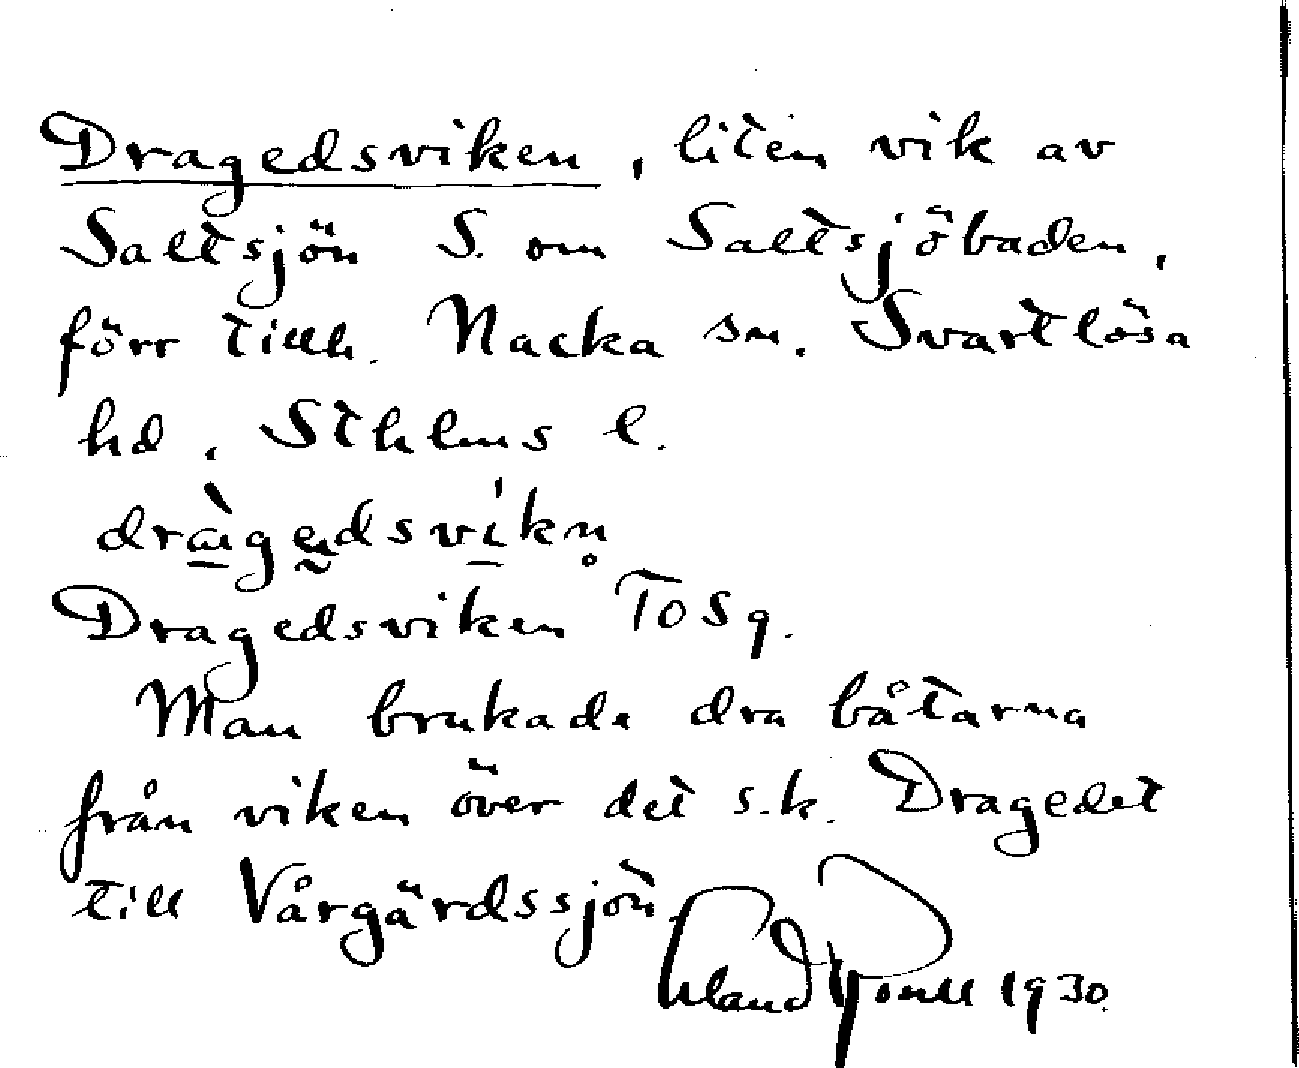 Dragedsviken, liten vik av
Saltsjön S. om Saltsjöbaden,
förr tillh. Nacka sn. Svartlösa
hd, Sthlms l.
dràgedsvíkn̥
Dragedsviken TOSq.
Man brukade dra båtarna
från viken över det s.k. Dragedet
till Vårgärdssjön.
Erland 1930.